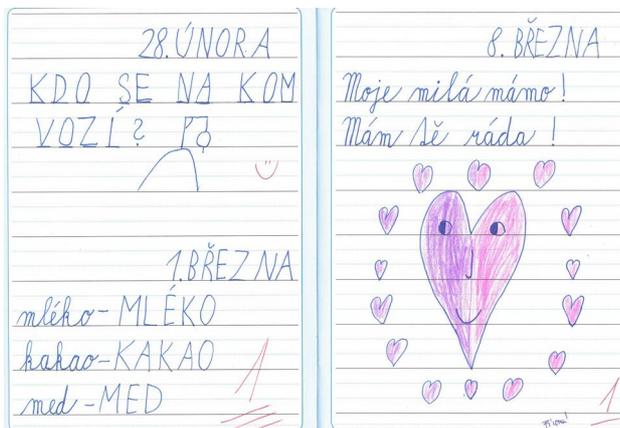 28. ÚNORA
KDO SE NA KOM
VOZÍ?
1. BŘEZNA
mléko - MLÉKO
kakao - KAKAO
med - MED
1
8. BŘEZNA
Moje milá mámo!
Mám tě ráda!
1